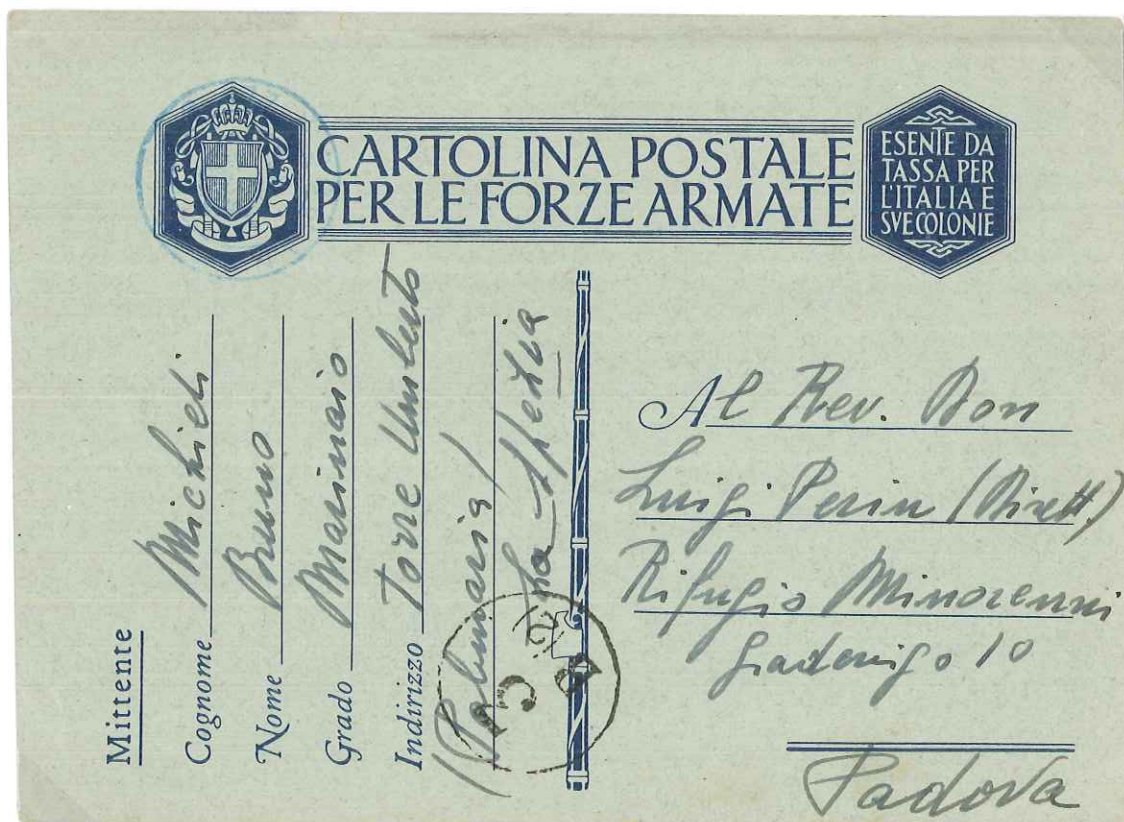 CARTOLINA POSTALE
PER LE FORZE ARMATE
ESENTE DA
TASSA PER
L'ITALIA E
SVE COLONIE
Mittente
Cognome Michieli
Nome Bruno
Grado Marinaio
Indirizzo Torre Umberto
(Palmaria)
La Spezia
Al Rev. Don
Luigi Perin (Dirett.)
Rifugio Minorenni
Gradenigo 10
Padova